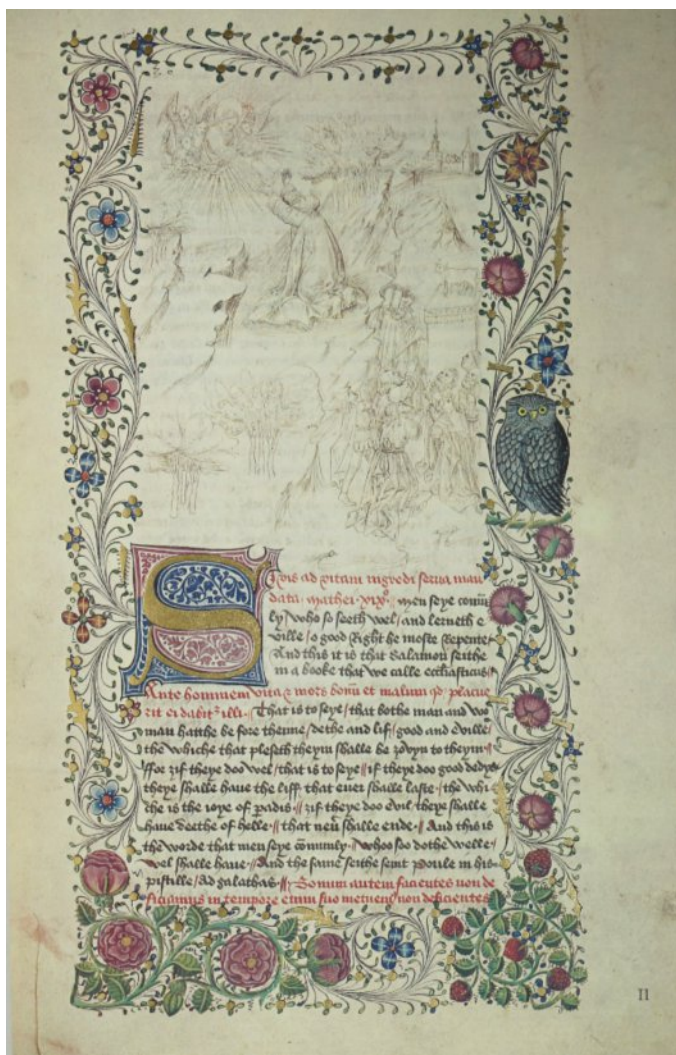 Si vis ad vitam ingredi serva man
data. Mathei. xixº. Men seye comū
ly who so seeth wel / and lerneth e
ville / o good right he moste repente
And this it is that Salamon seithe
in a booke that we calle ecclīasticus
Ante hominem vita & mors bonū et malum qd placue
rit ei dabitᷣ illi. That is to seye / that bothe man and wo
man hathe be fore theime / dethe and lif / good and eville
the whiche that pleseth theym shalle be zovyn to theym
ffor zif theye doo wel / that is to seye // if theye doo good dedys
theye shalle have the liff that ever shalle laste / the whi
che is the ioye of padis // zif theye doo evil theye shalle
have deethe of helle // that nev̄ shalle ende. And this is
the worde that men seye cōmunly. Whoo soo dothe welle
wel shalle have. And the same seithe seint Poule in his
pistille / Ad galathas // Bonum autem facientes non de
ficiamus in tempore enim suo metemꝰ non deficientes
II